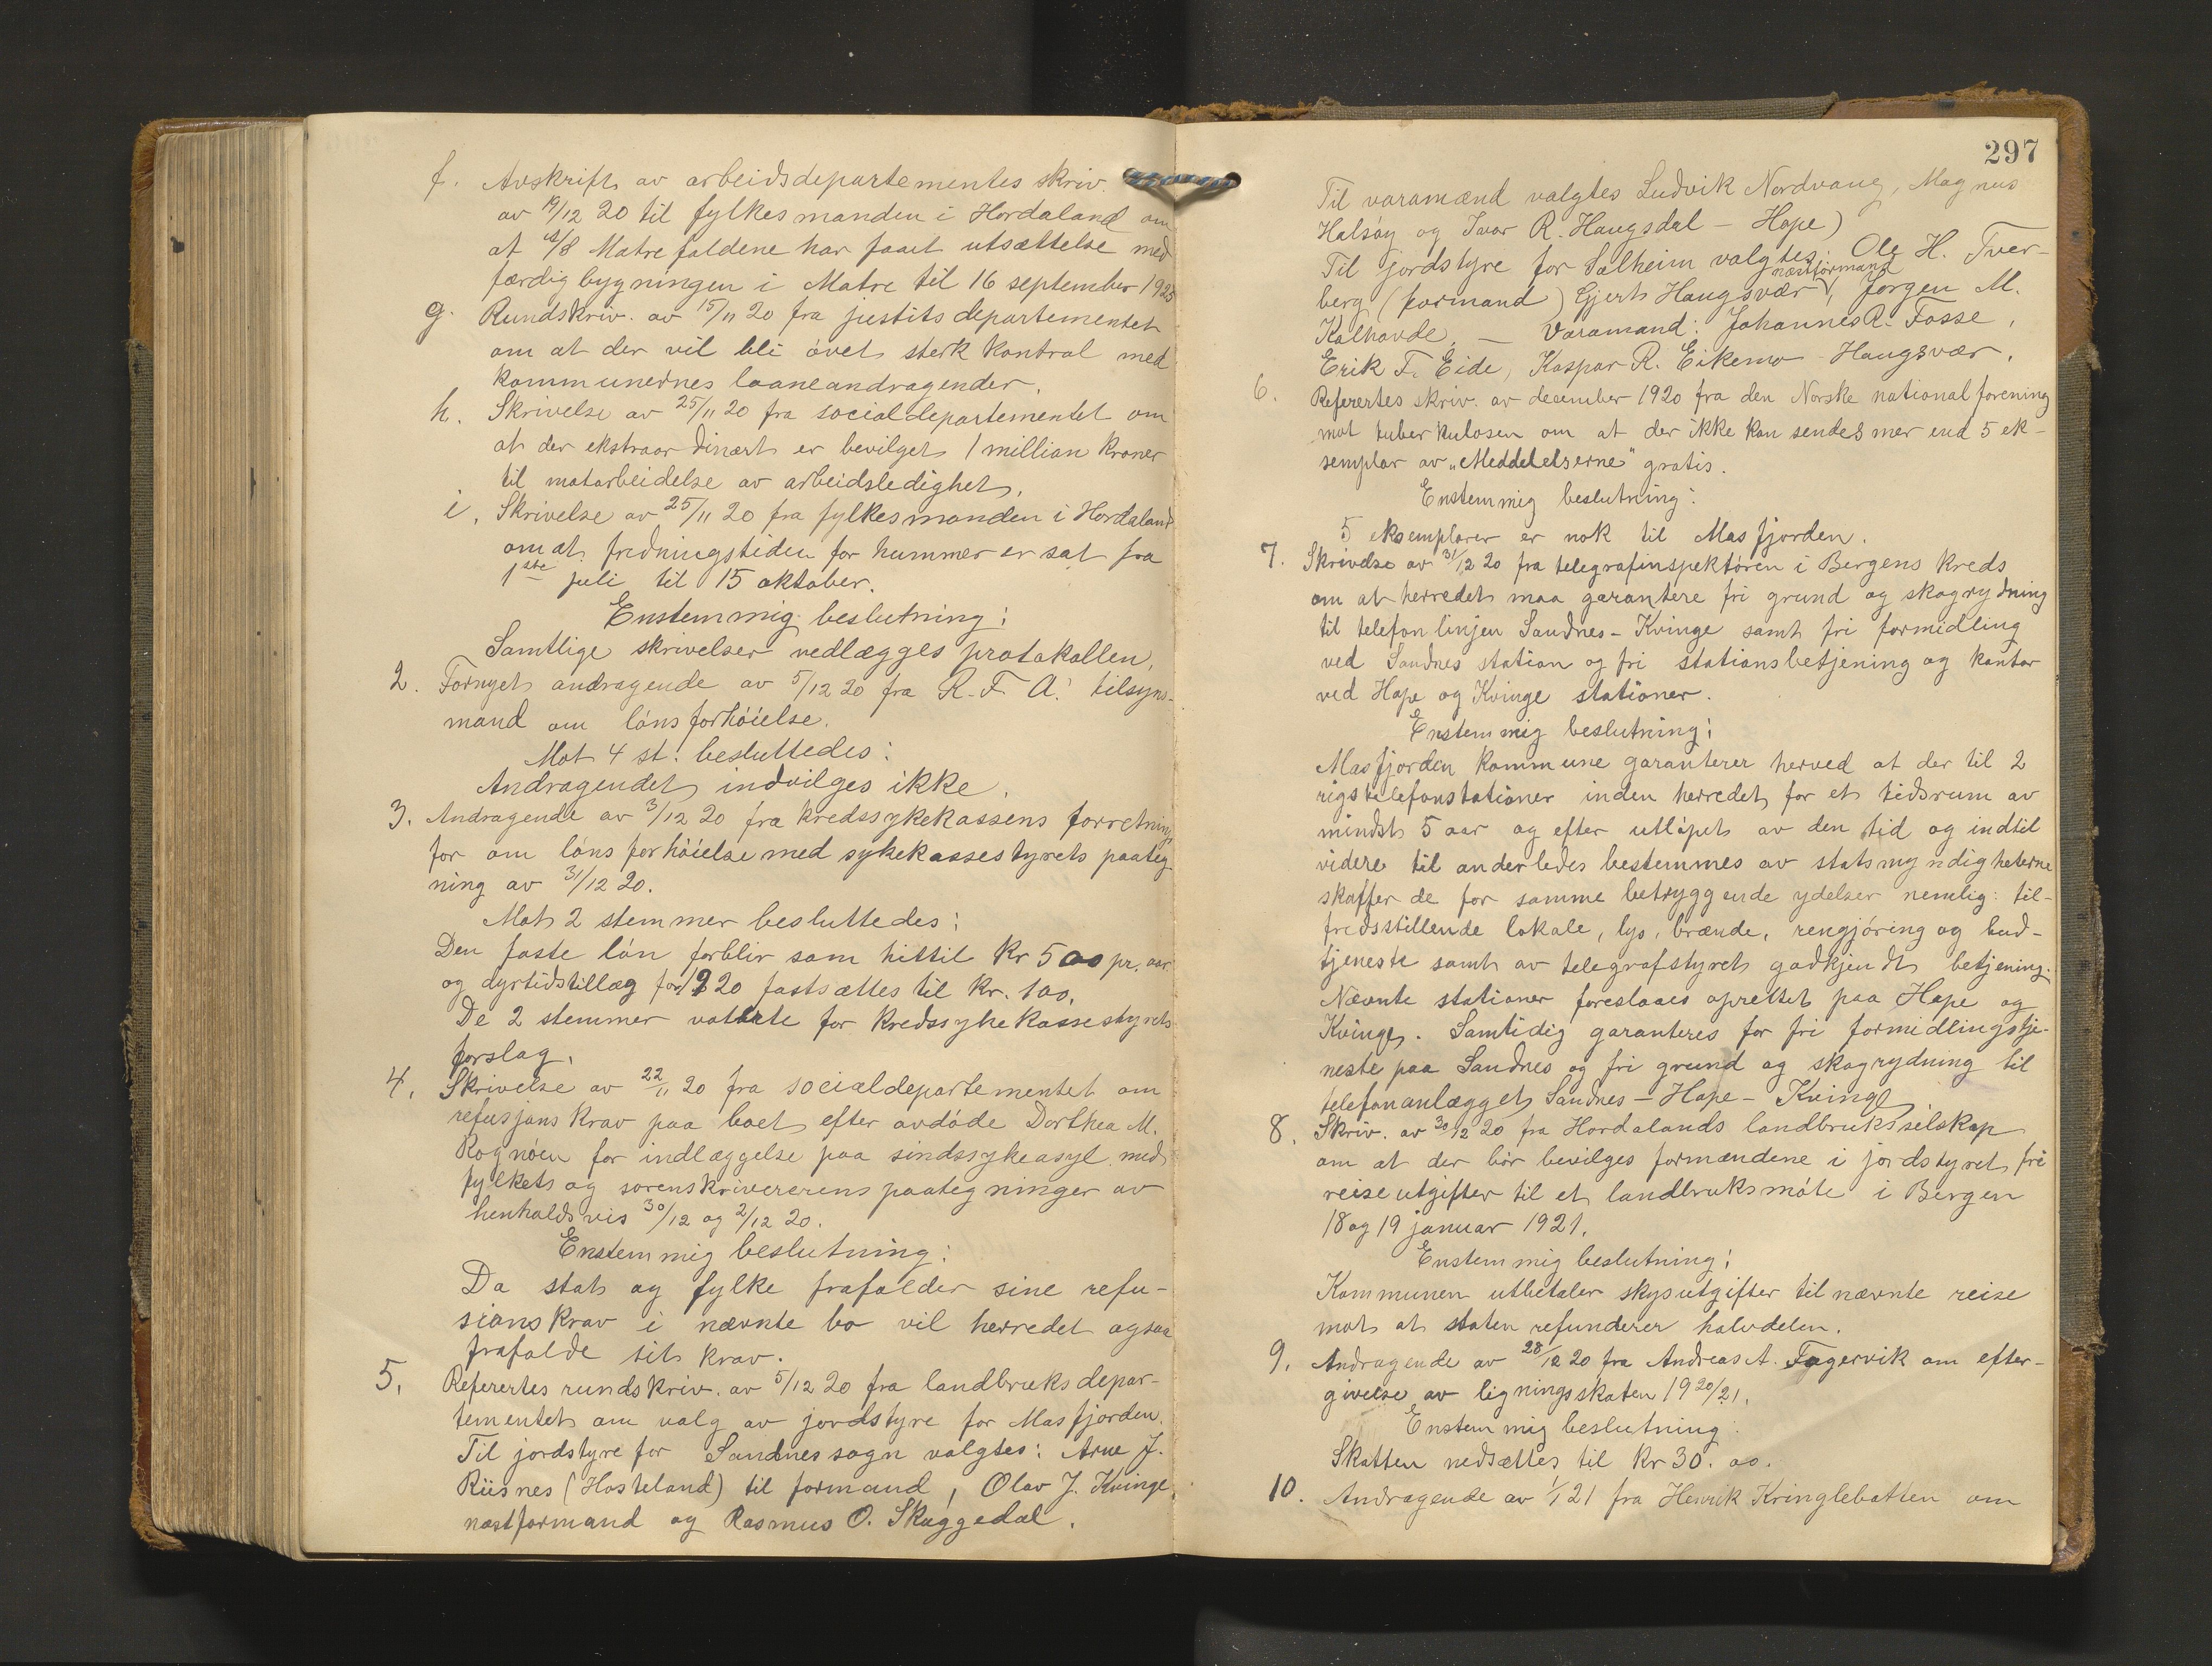 f. Avskrift av arbeidsdepartementes skriv.
av 19/12 20 til fylkesmanden i Hordaland om
at A/S Matrefaldene har faaet utsættelse med
færdigbygningen i Matre til 16 september 1925
g. Rundskriv. av 15/11 20 fra justitsdepartementet
om at der vil bli øvet sterk kontrol med
kommunernes laaneandragender.
h. Skrivelse av 25/11 20 fra socialdepartementet om
at der ekstraordinært er bevilget 1 million kroner
til motarbeidelse av arbeidsledighet.
i. Skrivelse av 25/11 20 fra fylkesmanden i Hordaland
om at fredningstiden for hummer er sat fra
1ste juli til 15 oktober.
Enstemmig beslutning:
Samtlige skrivelser vedlægges protokollen.
2. Fornyet andragende av 5/12 20 fra R. F. A. tilsyns-
mand om lønsforhøielse.
Mot 4 st. besluttedes:
Andragendet indvilges ikke.
3. Andragende av 3/12 20 fra kredssykekassens forretnings
før om lønsforhøielse med sykekassestyrets paateg
ning av 31/12 20.
Mot 2 stemmer besluttedes:
Den faste løn forblir som hittil kr 500 pr. aar
og dyrtidstillæg for 1920 fastsættes til kr. 100.
De 2 stemmer voterte for kredssykekassestyrets
forslag.
4. Skrivelse av 22/11 20 fra socialdepartementet om
refusjonskrav paa boet efter avdøde Dorthea M.
Rognøen for indlæggelse paa sindssykeasyl med
fylkets og sorenskrivererens paategninger av
henholdsvis 30/12 og 2/12 20.
Enstemmig beslutning:
Da stat og fylke frafalder sine refu-
sionskrav i nævnte bo vil herredet ogsaa
frafalde sit krav.
5. Refererte rundskriv. av 5/12 20 fra landbruksdepar-
tementet om valg av jordstyre for Masfjorden.
Til jordstyre for Sandnes sogn valgtes: Arne J.
Riisnes (Hosteland) til formand, Olav J. Kvinge
næstformand og Rasmus O. Skuggedal.
297
Til varamænd valgtes Ludvik Nordvang, Magnus
Halsøy og Ivar R. Haugsdal - Hope)
Til jordstyre for Solheim valgtes: Ole H. Tver-
berg (formand) Gjert Haugsvær næstformand, Jørgen M.
Kalhovde, - Varamand: Johannes R. Fosse,
Erik T. Eide, Kaspar R. Eikemo Haugsvær.
6. Referertes skriv. av december 1920 fra den Norske nationalforening
mot tuberkulosen om at der ikke kan sendes mer end 5 ek-
semplar av „Meddelelserne" gratis.
Enstemmig beslutning:
5 eksemplarer er nok til Masfjorden.
7. Skrivelse av 31/12 20 fra telegrafinspektøren i Bergens kreds
om at herredet maa garantere fri grund og skogrydning
til telefonlinjen Sandnes-Kvinge samt fri formidling
ved Sandnes station og fri stationsbetjening og kontor
ved Hope og Kvinge stationer.
Enstemmig beslutning:
Masfjorden kommune garanterer herved at der til 2
rigstelefonstationer inden herredet for et tidsrum av
mindst 5 aar og efter utløpet av den tid og indtil
videre til anderledes bestemmes av statsmyndigheterne
skaffer de for samme betryggende ydelser nemlig: til-
fredsstillende lokale, lys, brænde, rengjøring og bud-
tjeneste samt av telegrafstyret godkjendt betjening.
Nævnte stationer foreslaaes oprettet paa Hope og
Kvinge. Samtidig garanteres for fri formidlingstje-
neste paa Sandnes og fri grund og skogrydning til
telefonanlægget Sandnes - Hope - Kvinge.
8. Skriv. av 30/12 20 fra Hordalands landbruksselskap
om at der bør bevilges formændene i jordstyret fri
reiseutgifter til et landbruksmøte i Bergen
18 og 19 januar 1921.
Enstemmig beslutning:
Kommunen utbetaler skysutgifter til nævnte reise
mot at staten refunderer halvdelen.
9. Andragende av 28/12 20 fra Andreas A. Fagervik om efter-
givelse av ligningsskaten 1920/21.
Enstemmig beslutning:
Skatten nedsættes til kr 30.00.
10. Andragende av 1/1 21 fra Henrik Kringlebotten om